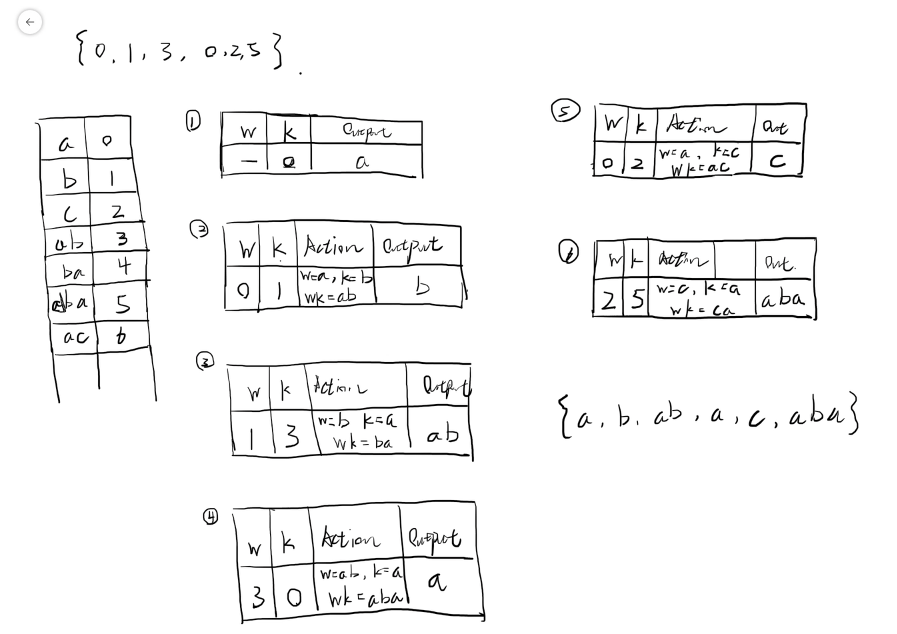 {0, 1, 3, 0, 2, 5}.
a 0
b 1
c 2
ab 3
ba 4
aba 5
ac 6
①
w k Output
— 0 a
②
w k Action Output
0 1 w=a, k=b wk=ab b
③
w k Action Output
1 3 w=b k=a wk=ba ab
④
w k Action Output
3 0 w=ab, k=a wk=aba a
⑤
w k Action Out
0 2 w=a, k=c wk=ac c
⑥
w k Action Out.
2 5 w=c, k=a wk=ca aba
{a, b, ab, a, c, aba}